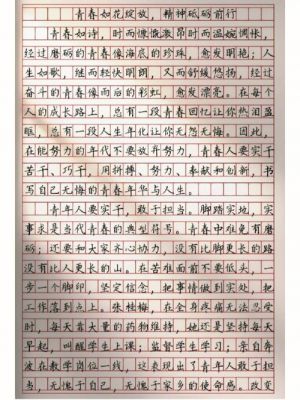 青春如花绽放，精神砥砺前行
青春如诗，时而慷慨激昂时而温婉惆怅，
经过磨砺的青春像海底的珍珠，愈发明艳；人
生如歌，继而轻快明朗，又而舒缓悠扬，经过
奋斗的青春像雨后的彩虹，愈发漂亮。在每个
人的成长路上，总有一段青春回忆让你热泪盈
眶，总有一段人生年化让你无怨无悔。因此，
在能努力的年代不要放弃努力，青春人要实干
苦干、巧干，用拼搏、努力、奉献和创新，书
写自己无悔的青春年华与人生。
青年人要实干，敢于担当。脚踏实地，实
事求是当代青春的典型符号。青春中难免有磨
砺；还要和大家齐心协力，没有比脚更长的路
没有比人更长的山。在苦难面前不要低头，一
步一个脚印，坚定信念，把事情做到实处，把
工作落到点上。张桂梅，在全身疼痛无法忍受
时，每天靠大量的药物维持，她还是坚持每天
早起，叫醒学生上课；监督学生学习；亲自奔
波在教学岗位一线，这表现出了青年人敢于担
当，无愧于自己，无愧于家乡的使命感。改变